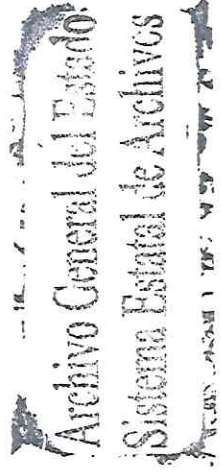 Archivo General del Estado.
Sistema Estatal de Archivos